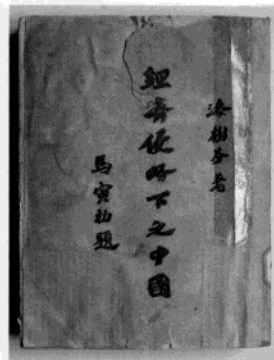 漆樹芬著
經濟侵略下之中國
馬寅初題